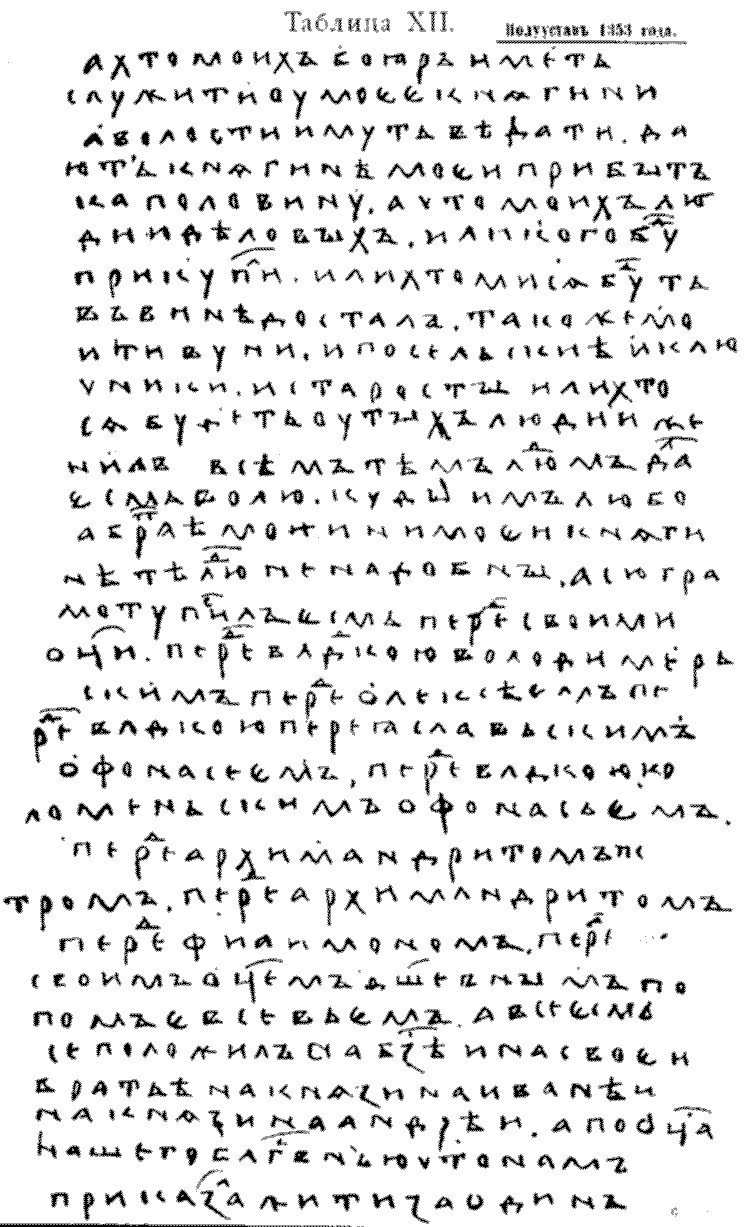 Таблица XII.
Полууставъ 1353 года.
а хто моихъ бояръ иметь
служити оу моее кнѧгини
а волости имуть вѣдати. да
ють кнѧгинѣ моеи прибытъ
ка половину. а хто моихъ лю
дии дѣловыхъ. или кого буд
прикупил. или хто ми сѧ буд ть
въ винѣ досталъ. тако же мо
и тивуни. и посельскиѣ и клю
чники. и старосты или хто
сѧ буде ть оу тыхъ людии же
нилъ всѣмъ тѣмъ людмъ дал
есмь волю. куды имъ любо
а братѣ моии и моеи кнѧги
нѣ тѣ люди не надобны. а сю гра
моту псилъ есмь перед своими
оци. перед влдкою володимерь
скимъ перед олексѣемъ пе
ред влдкою переꙗславьскимъ
офонасеемъ, перед влдкою ко
ломеньскимъ офонасьемъ.
перед архимандритомъ пе
тромъ. перед архимандритомъ
перед филимономъ. перед
своимъ оцемъ дшевнымъ по
помъ евсевьемъ. а все есмь
се положилъ на бзѣ и на своеи
братьѣ на кнѧзи на иванѣ и
на кнѧзи на андрѣи. а по оца
нашего блгвнью что намъ
приказал жити за одинъ